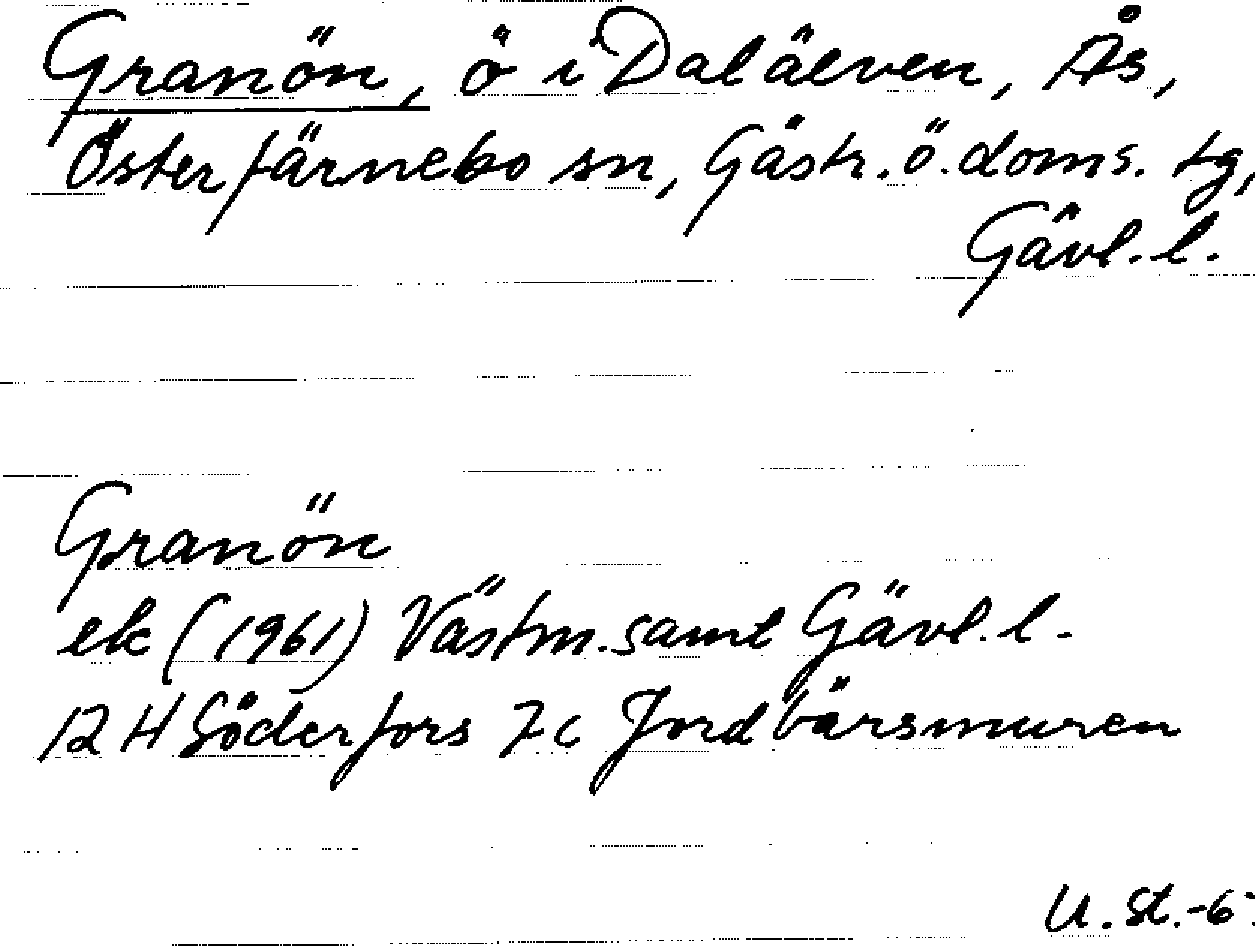 Granön, ö i Dalälven, Ås,
Österfärnebo sn, Gästr. ö. doms. tg,
Gävl. l.
Granön
ek (1961) Västm. samt Gävl. l.
12 H Söderfors 7 c Jordbärsmuren
U. St.-6